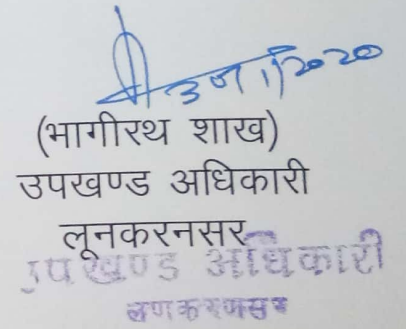 (भागीरथ शाख)
उपखण्ड अधिकारी
लूनकरनसर
उपखण्ड अधिकारी
लूणकरणसर